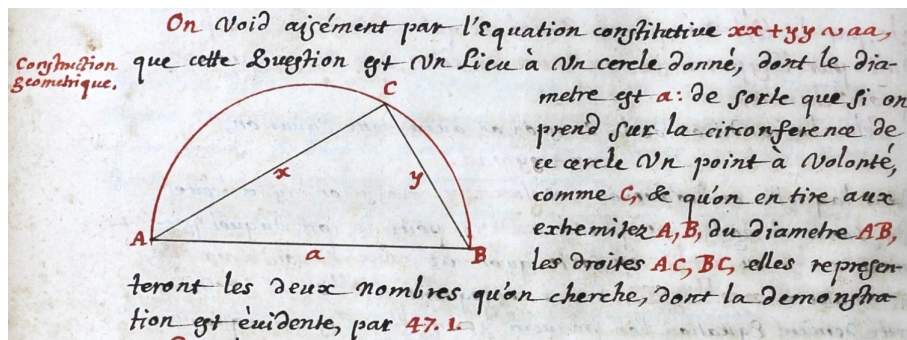 On void aisément par l'Equation constitutive xx+yy ∾ aa,
Construction
geometrique.
que cette Question est Un Lieu à Un cercle donné, dont le dia-
C
metre est a: de sorte que si on
prend sur la circonference de
ce cercle Un point à Volonté,
x
y
comme C, & qu'on en tire aux
extremitez A, B, du diametre AB,
A
B
a
les droites AC, BC, elles represen-
teront les deux nombres qu'on cherche, dont la demonstra-
tion est èvidente, par 47. 1.